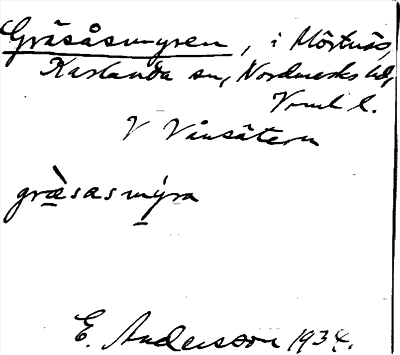 Gräsåsmyren, i Mörtnäs,
Karlanda sn, Nordmarks hd,
Vrml l.
V Vänsätern
græ̀sasmýra
E. Andersson 1934.